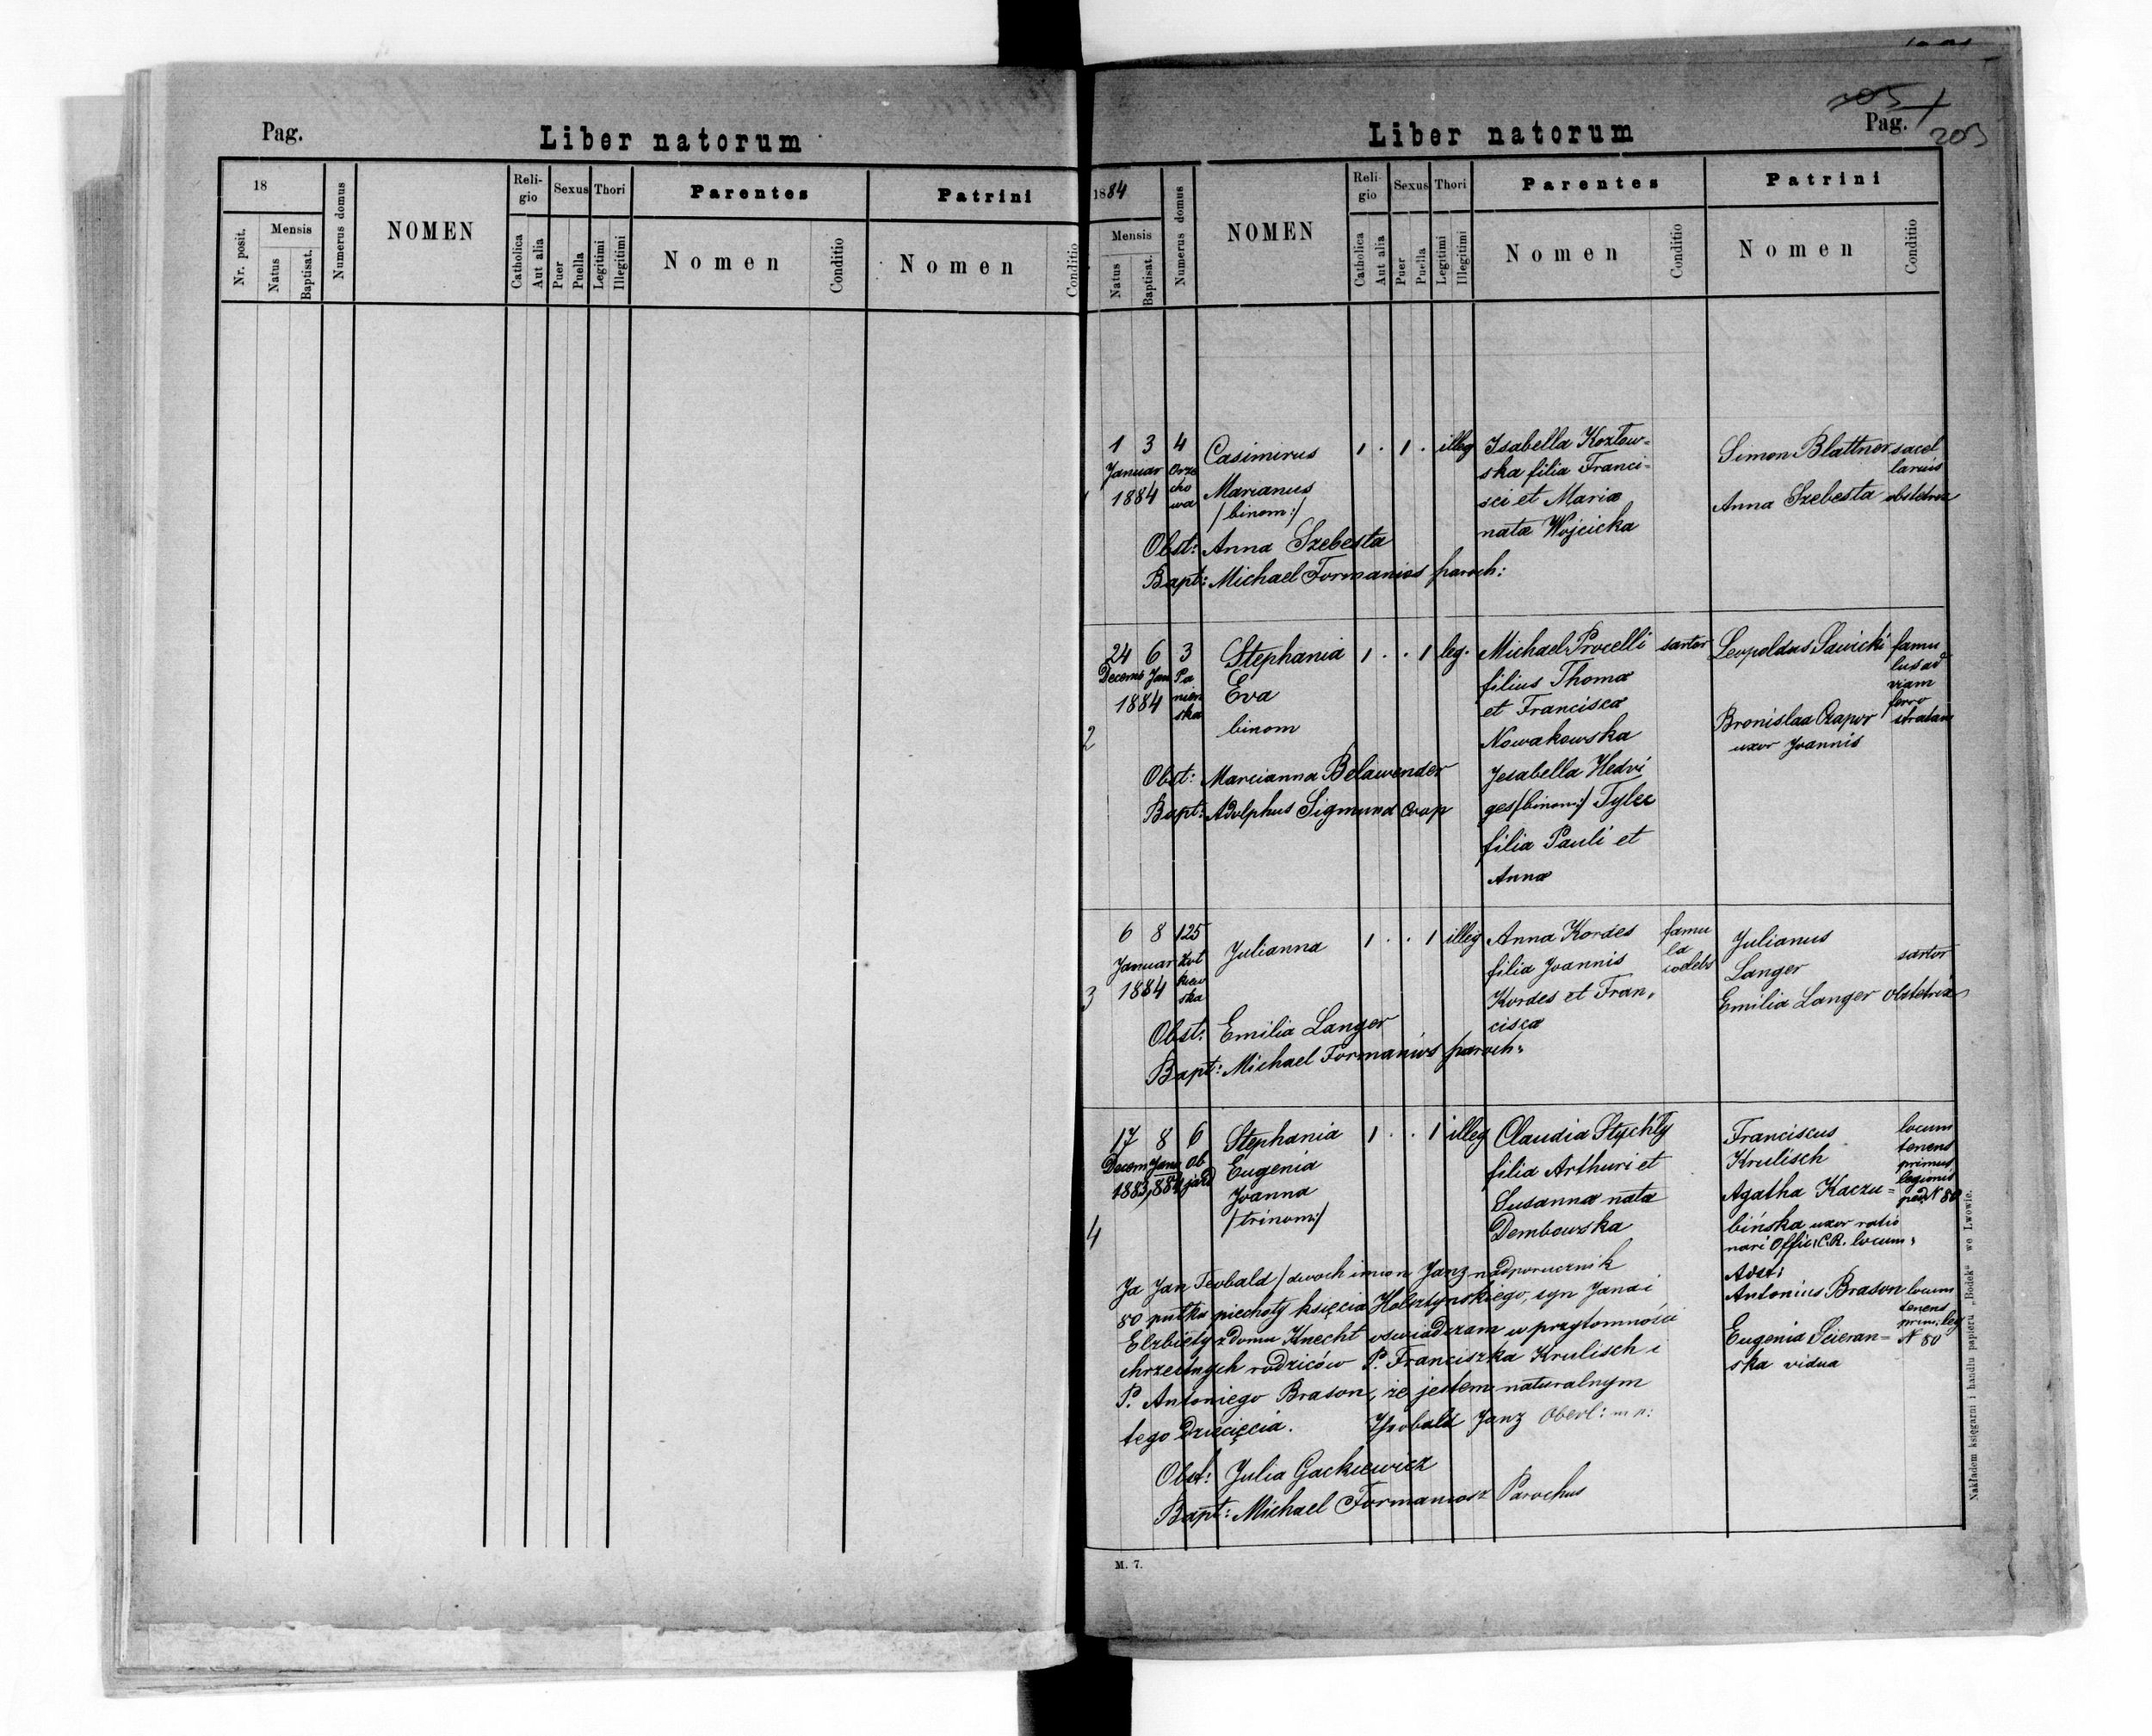 Pag.
Liber natorum
18
Nr. posit.
Mensis
Natus
Baptisat.
Numerus domus
NOMEN
Religio
Catholica
Aut alia
Sexus
Puer
Puella
Thori
Legitimi
Illegitimi
Parentes
Nomen
Conditio
Patrini
Nomen
Conditio
Liber natorum
Pag.
205
203
1884
Mensis
Natus
Baptisat.
Numerus domus
NOMEN
Reli-
gio
Catholica
Aut alia
Sexus
Puer
Puella
Thori
Legitimi
Illegitimi
Parentes
Nomen
Conditio
Patrini
Nomen
Conditio
1
1 3 4
Januar Orze
cho
wa
1884
Casimirus
Marianus
/binom:/
1 . 1 . illeg
Isabella Kozłow=
ska filia Franci=
sci et Mariæ
natæ Wojcicka
Simon Blattner sacel
larius
Anna Szebesta obstetrix
Obst: Anna Szebesta
Bapt: Michael Formanios paroch:
2
24 6 3
Decemb Jan Pa
nien
ska
1884
Stephania
Eva
binom
1 . . 1 leg.
Michael Procelli sartor
filius Thomæ
et Francisca
Nowakowska
Jesabella Hedvi
ges /binom:/ Tylec
filia Pauli et
Annæ
Leopoldus Sawicki famu
lus ad
viam
ferro
stratam
Bronislaa Czapor
uxor Joannis
Obst: Marcianna Belawender
Bapt: Adolphus Sigmund Coop
3
6 8 125
Januar Żół
kiew
ska
1884
Julianna
1 . . 1 illeg
Anna Kordes famu
la
coelebs
filia Joannis
Kordes et Fran,
cisca
Julianus
Langer sartor
Emilia Langer Obstetrix
Obst: Emilia Langer
Bapt: Michael Formanios paroch:
4
17 8 6
Decem Jan Ob
1883, 884 jazd
Stephania
Eugenia
Joanna
/trinom:/
1 . . 1 illeg
Claudia Stychly
filia Arthuri et
Susannæ natæ
Dembowska
Franciscus
Krulisch
locum
tenens
primus
legionis
ped N 80
Agatha Kaczu=
bińska uxor ratio
nari Offic: C.R. locum,
Adst:
Antonius Brason locum
tenens
prim: leg
N 80
Eugenia Scieran=
ska vidua
Ja Jan Teobald /dwoch imion Janz nadporucznik
80 pułku piechoty księcia Holsztynskiego, syn Jana i
Elżbiety z domu Knecht oswiadczam w przytomności
chrzestnych rodziców P. Franciszka Krulisch i
P. Antoniego Brason, że jestem naturalnym
tego dziecięcia. Theobald Janz Oberl: m p:
Obst: Julia Gackiewicz
Bapt: Michael Formaniosz Parochus
M. 7.
Nakładem księgarni i handlu papieru „Bodek" we Lwowie.